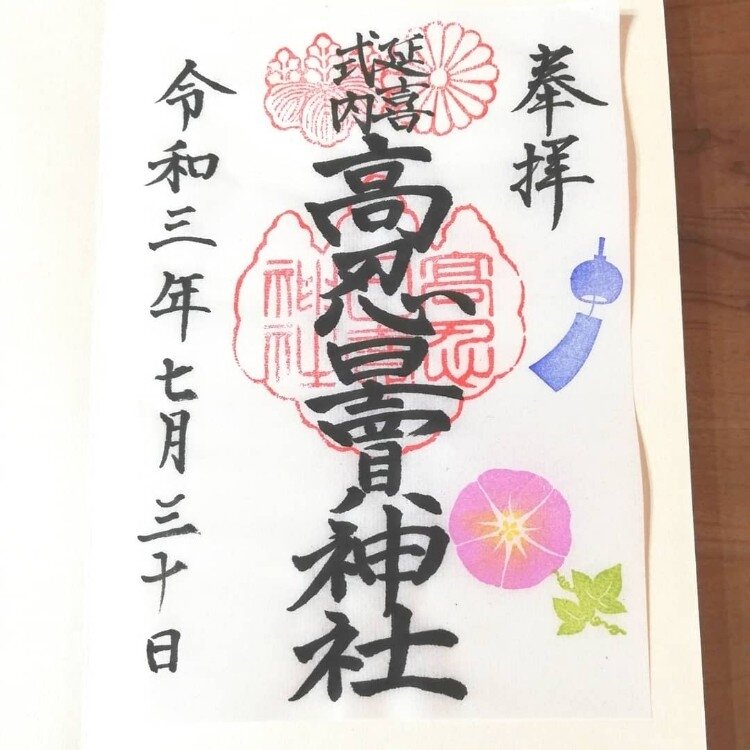 奉拝
延喜
式内
高忍日賣神社
高忍
日賣
神社
令和三年七月三十日